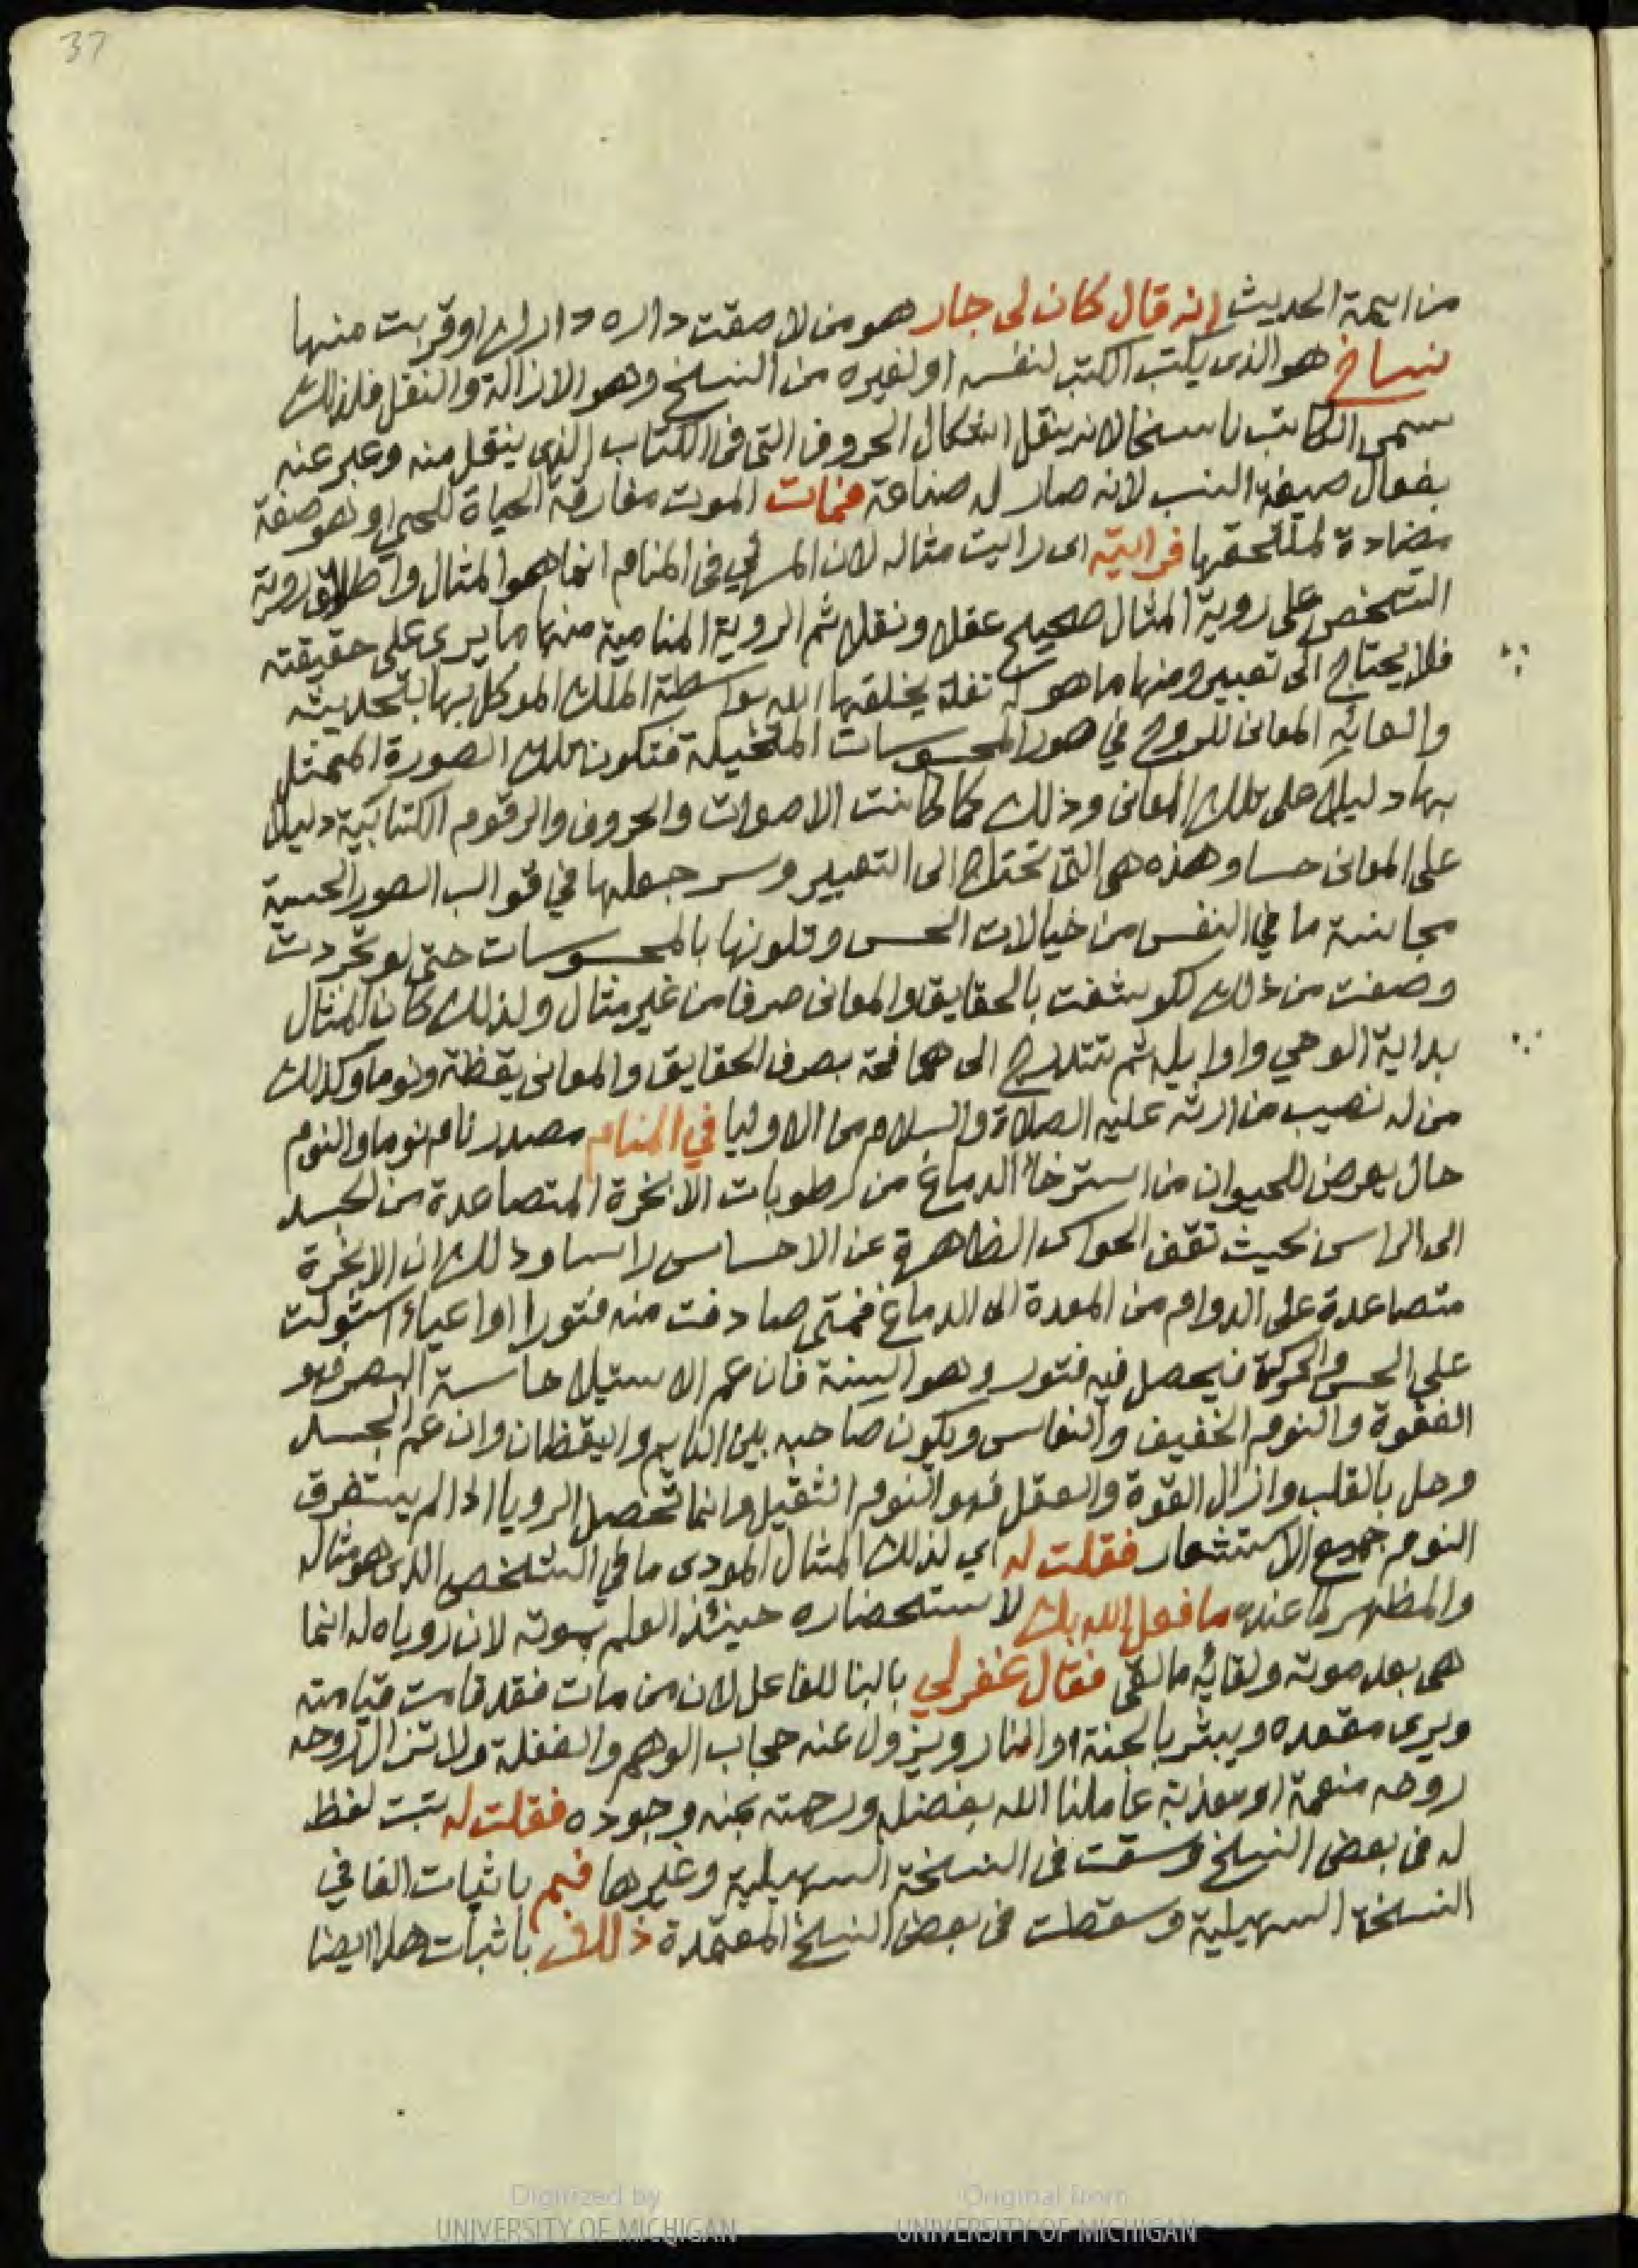 37
من ايمة الحديث انه قال كان لى جار هو من لاصقت داره دارك او قربت منها
نساخ هو الذى يكتب الكتب لنفسه او لغيره من النسخ وهو الازالة والنقل فلذلك
سمى الكاتب ناسخا لانه ينقل اشكال الحروف التى فى الكتاب الذى ينقل منه وعبر عنه
بفعال صيغة النسب لانه صار له صناعة فمات الموت مفارقة الحياة للحى او هو صفة
مضادة لمتحققها فرايته اى رايت مثاله لان المرئي فى المنام انما هو المثال واطلاق روية
الشخص على روية المثال صحيح عقلا ونقلا ثم الروية المنامية منها ما يرى على حقيقته
فلا يحتاج الى تعبير ومنها ما هو يخلقها الله بواسطة الملك الموكل بها بتحديثه
والقائه المعانى للروح في صور المحسوسات المتخيلة فتكون تلك الصورة المتمثل
بها دليلا على تلك المعانى وذلك كما كانت الاصوات والحروف والرقوم الكتابية دليلا
على المعانى حسا وهذه هى التى تحتاج الى التعبير وسر جعلها في قوالب الصور الحسية
مجانسة ما في النفس من خيالات الحس وتلونها بالمحسوسات حتى لو تجردت
وصفت من ذلك لكوشفت بالحقايق والمعانى صرفا من غير مثال ولذلك كان المثال
بداية الوحي واوايله ثم تتدرج الى بصرف الحقايق والمعانى يقظة ونوما وكذلك
من له نصيب من ارثه عليه الصلاة والسلام من الاوليا في المنام مصدر نام نوما والنوم
حال يعرض للحيوان من استرخاء الدماغ من رطوبات الابخرة المتصاعدة من الجسد
الى الراس بحيث تقف الحواس الظاهرة عن الاحساس راسا وذلك ان الابخرة
متصاعدة على الدوام من المعدة الى الدماغ فمتى صادفت منه فتورا او اعياء استولت
على الحس والحركة فيحصل فيه فتور وهو السنة فان عم الاستيلا حاسة البصر فهو
الغفوة والنوم الخفيف والنعاس ويكون صاحبه بين النايم واليقظان وان عم الجسد
وحل بالقلب وازال القوة والعقل فهو النوم الثقيل وانما تحصل الرويا اذا لم يستغرق
النوم جميع الاستشعار فقلت له اي لذلك المثال المودى ما في الشخص الذى هو مثاله
والمظهر لما عنده ما فعل الله بك لاستحضاره حينئذ العلم بموته لان روياه له انما
هى بعد موته ولقائه ما لقى فقال غفر لي بالبنا للفاعل لان من مات فقد قامت قيامته
ويرى مقعده ويبشر بالجنة او النار ويزول عنه حجاب الوهم والغفلة ولا تزال روحه
روحه منعمة او معذبة عاملنا الله بفضله ورحمته بمنه وجوده فقلت له ثبت لفظ
له فى بعض النسخ وسقت فى النسخة السهيلية وغيرها فبم باثبات الفا في
النسخة السهيلية وسقطت فى بعض النسخ المعتمدة ذلك باثبات هذا ايضا
Digitized by
UNIVERSITY OF MICHIGAN
Original from
UNIVERSITY OF MICHIGAN